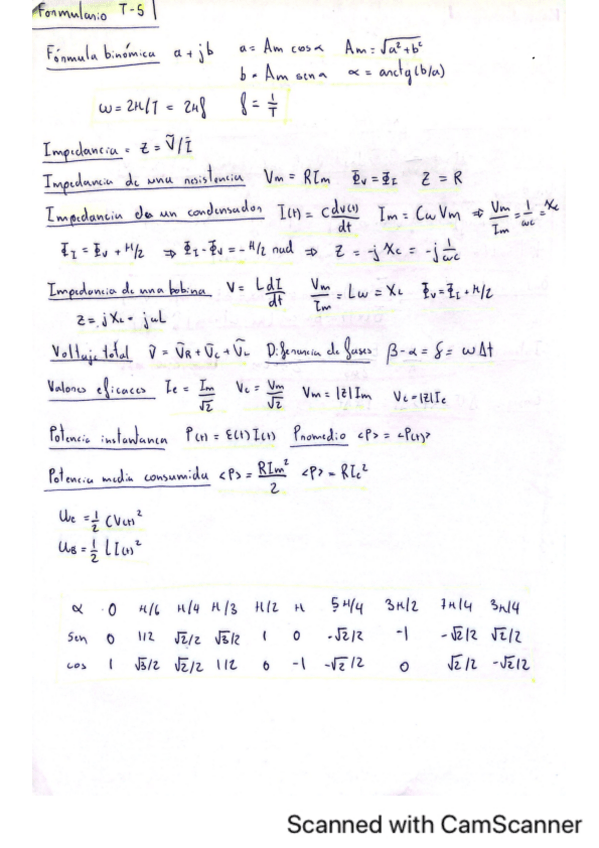 Formulario T-5
Fórmula binómica a + jb a = Am cosα Am = √a²+b²
b = Am senα α = arctg(b/a)
ω = 2π/T = 2πf f = 1/T
Impedancia = Z = Ṽ/Ĩ
Impedancia de una resistencia Vm = RIm Φv = ΦI Z = R
Impedancia de un condensador I(t) = C dV(t)/dt Im = CωVm ⇒ Vm/Im = 1/ωC = Xc
ΦI = Φv + π/2 ⇒ ΦI - Φv = -π/2 rad ⇒ Z = -jXc = -j 1/ωC
Impedancia de una bobina V = L dI/dt Vm/Im = Lω = XL Φv = ΦI + π/2
Z = jXL = jωL
Voltaje total Ṽ = ṼR + ṼC + ṼL Diferencia de fases β - α = δ = ωΔt
Valores eficaces Ie = Im/√2 Ve = Vm/√2 Vm = |Z|Im Ve = |Z|Ie
Potencia instantanea P(t) = ε(t) I(t) Promedio <P> = <P(t)>
Potencia media consumida <P> = RIm²/2 <P> = RIe²
UE = 1/2 CV(t)²
UB = 1/2 LI(t)²
α 0 π/6 π/4 π/3 π/2 π 5π/4 3π/2 7π/4 3π/4
sen 0 1/2 √2/2 √3/2 1 0 -√2/2 -1 -√2/2 √2/2
cos 1 √3/2 √2/2 1/2 0 -1 -√2/2 0 √2/2 -√2/2
Scanned with CamScanner